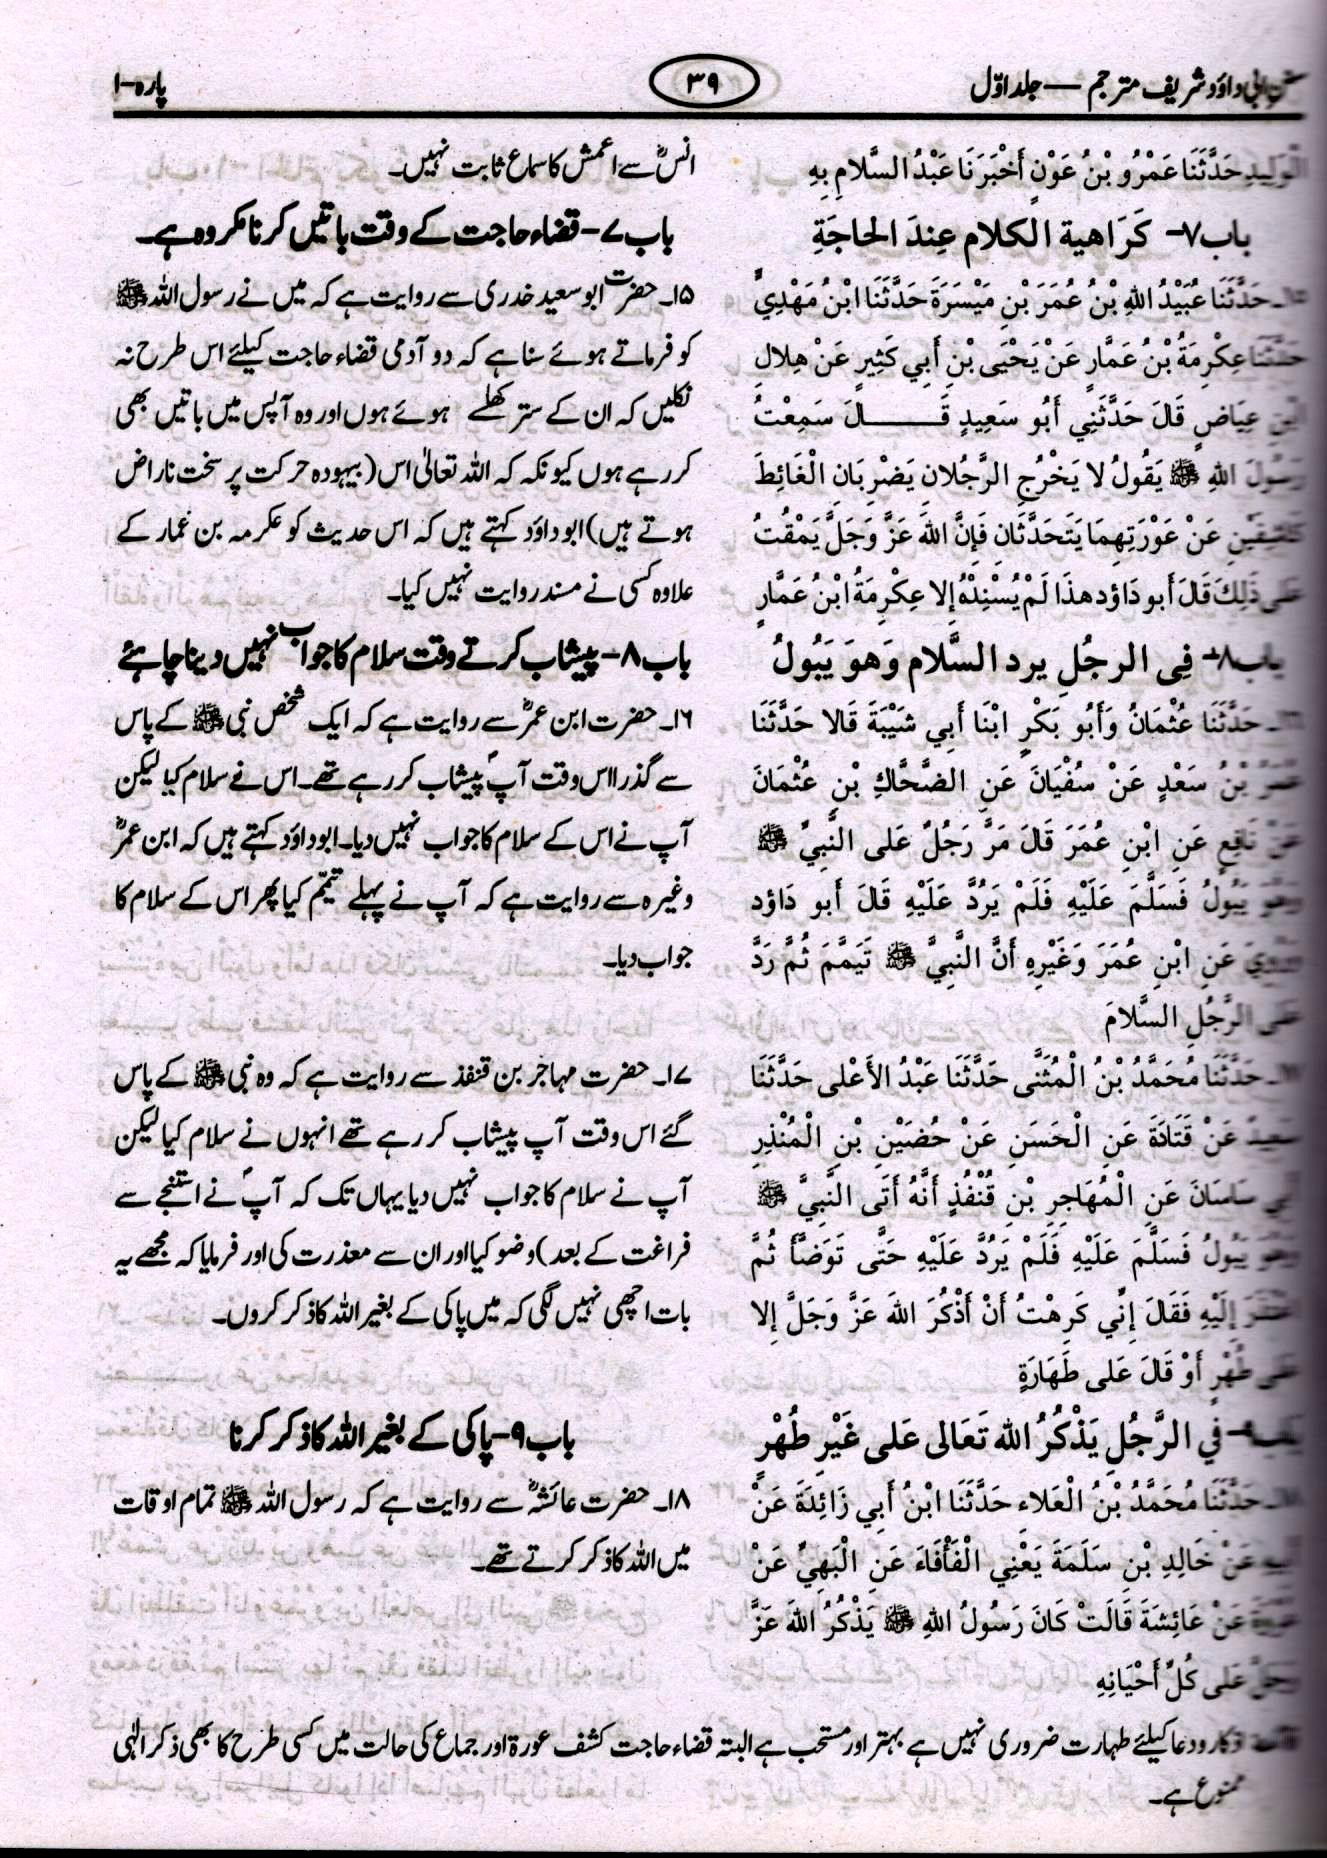 داؤد شریف مترجم — جلد اوّل
۳۹
پارہ-۱
حَدَّثَنَا عَمْرُو بْنُ عَوْنٍ أَخْبَرَنَا عَبْدُ السَّلَامِ بِهِ
باب ۷- كَرَاهية الكلام عِندَ الحاجَةِ
حَدَّثَنَا عُبَيْدُ اللهِ بْنُ عُمَرَ بْنِ مَيْسَرَةَ حَدَّثَنَا ابْنُ مَهْدِيٍّ
حَدَّثَنَا عِكْرِمَةُ بْنُ عَمَّارٍ عَنْ يَحْيَى بْنِ أَبِي كَثِيرٍ عَنْ هِلالِ
ابْنِ عِيَاضٍ قَالَ حَدَّثَنِي أَبُو سَعِيدٍ قَـــــــالَ سَمِعْتُ
رَسُولَ اللهِ ﷺ يَقُولُ لا يَخْرُجِ الرَّجُلانِ يَضْرِبَانِ الْغَائِطَ
كَاشِفَيْنِ عَنْ عَوْرَتِهِمَا يَتَحَدَّثَانِ فَإِنَّ اللهَ عَزَّ وَجَلَّ يَمْقُتُ
عَلَى ذَلِكَ قَالَ أَبو دَاوُد هذَا لَمْ يُسْنِدْهُ إِلا عِكْرِمَةُ ابْنُ عَمَّارٍ
باب ۸- فِى الرجُلِ يرد السَّلام وَهوَ يَبُولُ
۱۶ـ حَدَّثَنَا عُثْمَانُ وَأَبُو بَكْرٍ ابْنَا أَبِي شَيْبَةَ قَالا حَدَّثَنَا
عُمَرُ بْنُ سَعْدٍ عَنْ سُفْيَانَ عَنِ الضَّحَّاكِ بْنِ عُثْمَانَ
عَنْ نَافِعٍ عَنِ ابْنِ عُمَرَ قَالَ مَرَّ رَجُلٌ عَلى النَّبِيِّ ﷺ
وَهُوَ يَبُولُ فَسَلَّمَ عَلَيْهِ فَلَمْ يَرُدَّ عَلَيْهِ قَالَ أَبو دَاوُد
وَرُوِيَ عَنِ ابْنِ عُمَرَ وَغَيْرِهِ أَنَّ النَّبِيَّ ﷺ تَيَمَّمَ ثُمَّ رَدَّ
عَلَى الرَّجُلِ السَّلامَ
۱۷ـ حَدَّثَنَا مُحَمَّدُ بْنُ الْمُثَنَّى حَدَّثَنَا عَبْدُ الأَعْلى حَدَّثَنَا
سَعِيدٌ عَنْ قَتَادَةَ عَنِ الْحَسَنِ عَنْ حُضَيْنِ بْنِ الْمُنْذِرِ
أَبِي سَاسَانَ عَنِ الْمُهَاجِرِ بْنِ قُنْفُذٍ أَنَّهُ أَتَى النَّبِيَّ ﷺ
وَهُوَ يَبُولُ فَسَلَّمَ عَلَيْهِ فَلَمْ يَرُدَّ عَلَيْهِ حَتَّى تَوَضَّأَ ثُمَّ
اعْتَذَرَ إِلَيْهِ فَقَالَ إِنِّي كَرِهْتُ أَنْ أَذْكُرَ اللهَ عَزَّ وَجَلَّ إِلا
عَلى طُهْرٍ أَوْ قَالَ عَلى طَهَارَةٍ
باب ۹- فِي الرَّجُلِ يَذْكُرُ الله تَعَالى عَلى غَيْرِ طُهْرٍ
۱۸ـ حَدَّثَنَا مُحَمَّدُ بْنُ الْعَلاءِ حَدَّثَنَا ابْنُ أَبِي زَائِدَةَ عَنْ
أَبِيهِ عَنْ خَالِدِ بْنِ سَلَمَةَ يَعْنِي الْفَأْفَاءَ عَنِ الْبَهِيِّ عَنْ
عُرْوَةَ عَنْ عَائِشَةَ قَالَتْ كَانَ رَسُولُ اللهِ ﷺ يَذْكُرُ اللهَ عَزَّ
وَجَلَّ عَلى كُلِّ أَحْيَانِهِ
انسؓ سے اعمش کا سماع ثابت نہیں۔
باب ۷- قضاء حاجت کے وقت باتیں کرنا مکروہ ہے۔
۱۵۔ حضرت ابو سعید خدری سے روایت ہے کہ میں نے رسول اللہ ﷺ
کو فرماتے ہوئے سنا ہے کہ دو آدمی قضاء حاجت کیلئے اس طرح نہ
نکلیں کہ ان کے ستر کھلے ہوئے ہوں اور وہ آپس میں باتیں بھی
کر رہے ہوں کیونکہ کہ اللہ تعالیٰ اس (بیہودہ حرکت پر سخت ناراض
ہوتے ہیں) ابوداؤد کہتے ہیں کہ اس حدیث کو عکرمہ بن عمار کے
علاوہ کسی نے مسند روایت نہیں کیا۔
باب ۸- پیشاب کرتے وقت سلام کا جواب نہیں دینا چاہئے
۱۶۔ حضرت ابن عمرؓ سے روایت ہے کہ ایک شخص نبی ﷺ کے پاس
سے گذرا اس وقت آپؐ پیشاب کر رہے تھے۔ اس نے سلام کیا لیکن
آپ نے اس کے سلام کا جواب نہیں دیا۔ ابوداؤد کہتے ہیں کہ ابن عمرؓ
وغیرہ سے روایت ہے کہ آپ نے پہلے تیمّم کیا پھر اس کے سلام کا
جواب دیا۔
۱۷۔ حضرت مہاجر بن قنفذ سے روایت ہے کہ وہ نبی ﷺ کے پاس
گئے اس وقت آپ پیشاب کر رہے تھے انہوں نے سلام کیا لیکن
آپ نے سلام کا جواب نہیں دیا یہاں تک کہ آپؐ نے استنجے سے
فراغت کے بعد) وضو کیا اور ان سے معذرت کی اور فرمایا کہ مجھے یہ
بات اچھی نہیں لگی کہ میں پاکی کے بغیر اللہ کا ذکر کروں۔
باب ۹- پاکی کے بغیر اللہ کا ذکر کرنا
۱۸۔ حضرت عائشہؓ سے روایت ہے کہ رسول اللہ ﷺ تمام اوقات
میں اللہ کا ذکر کرتے تھے۔
اذکار و دعا کیلئے طہارت ضروری نہیں ہے بہتر اور مستحب ہے البتہ قضاء حاجت کشف عورة اور جماع کی حالت میں کسی طرح کا بھی ذکر الٰہی
ممنوع ہے۔